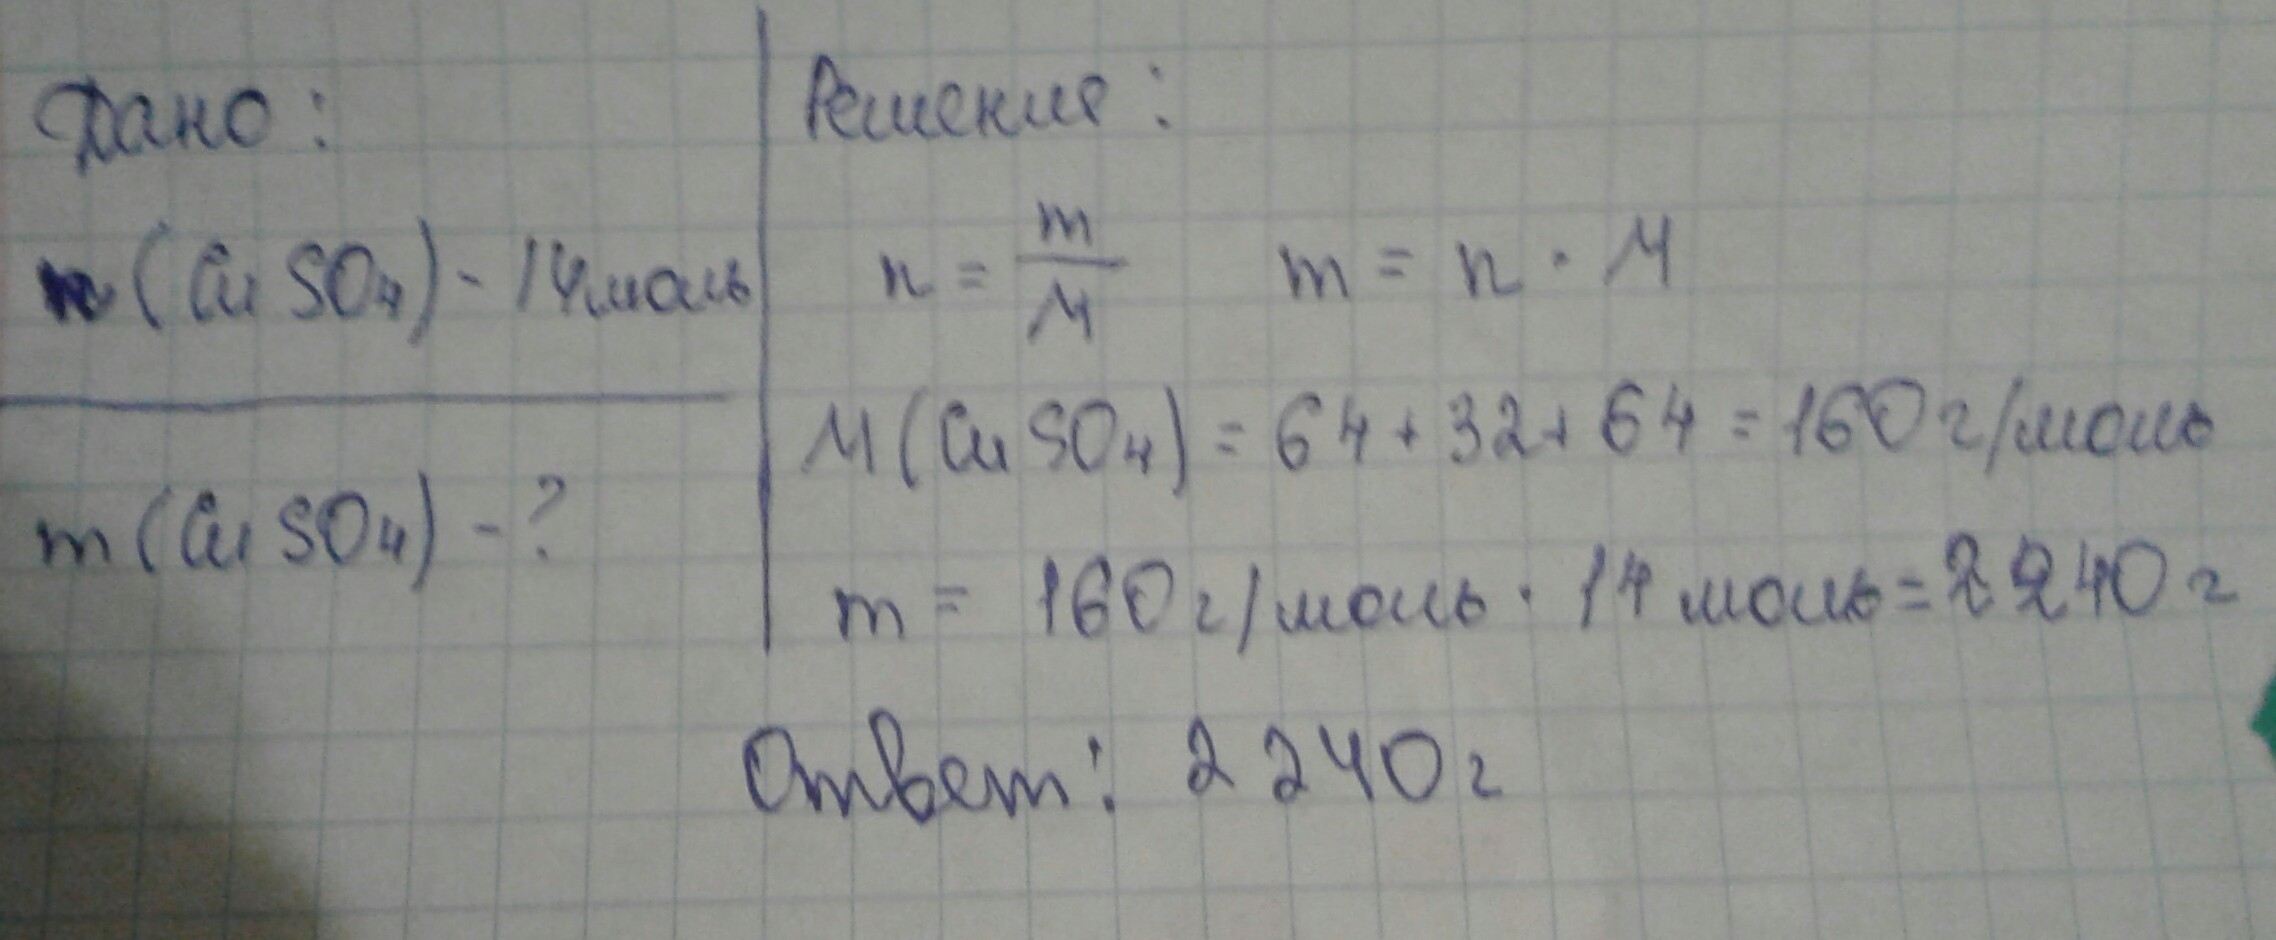 Дано:
n (CuSO₄) - 14моль
m (CuSO₄) - ?
Решение:
n = m/M m = n · M
M (CuSO₄) = 64 + 32 + 64 = 160 г/моль
m = 160 г/моль · 14 моль = 2240 г
Ответ: 2240 г